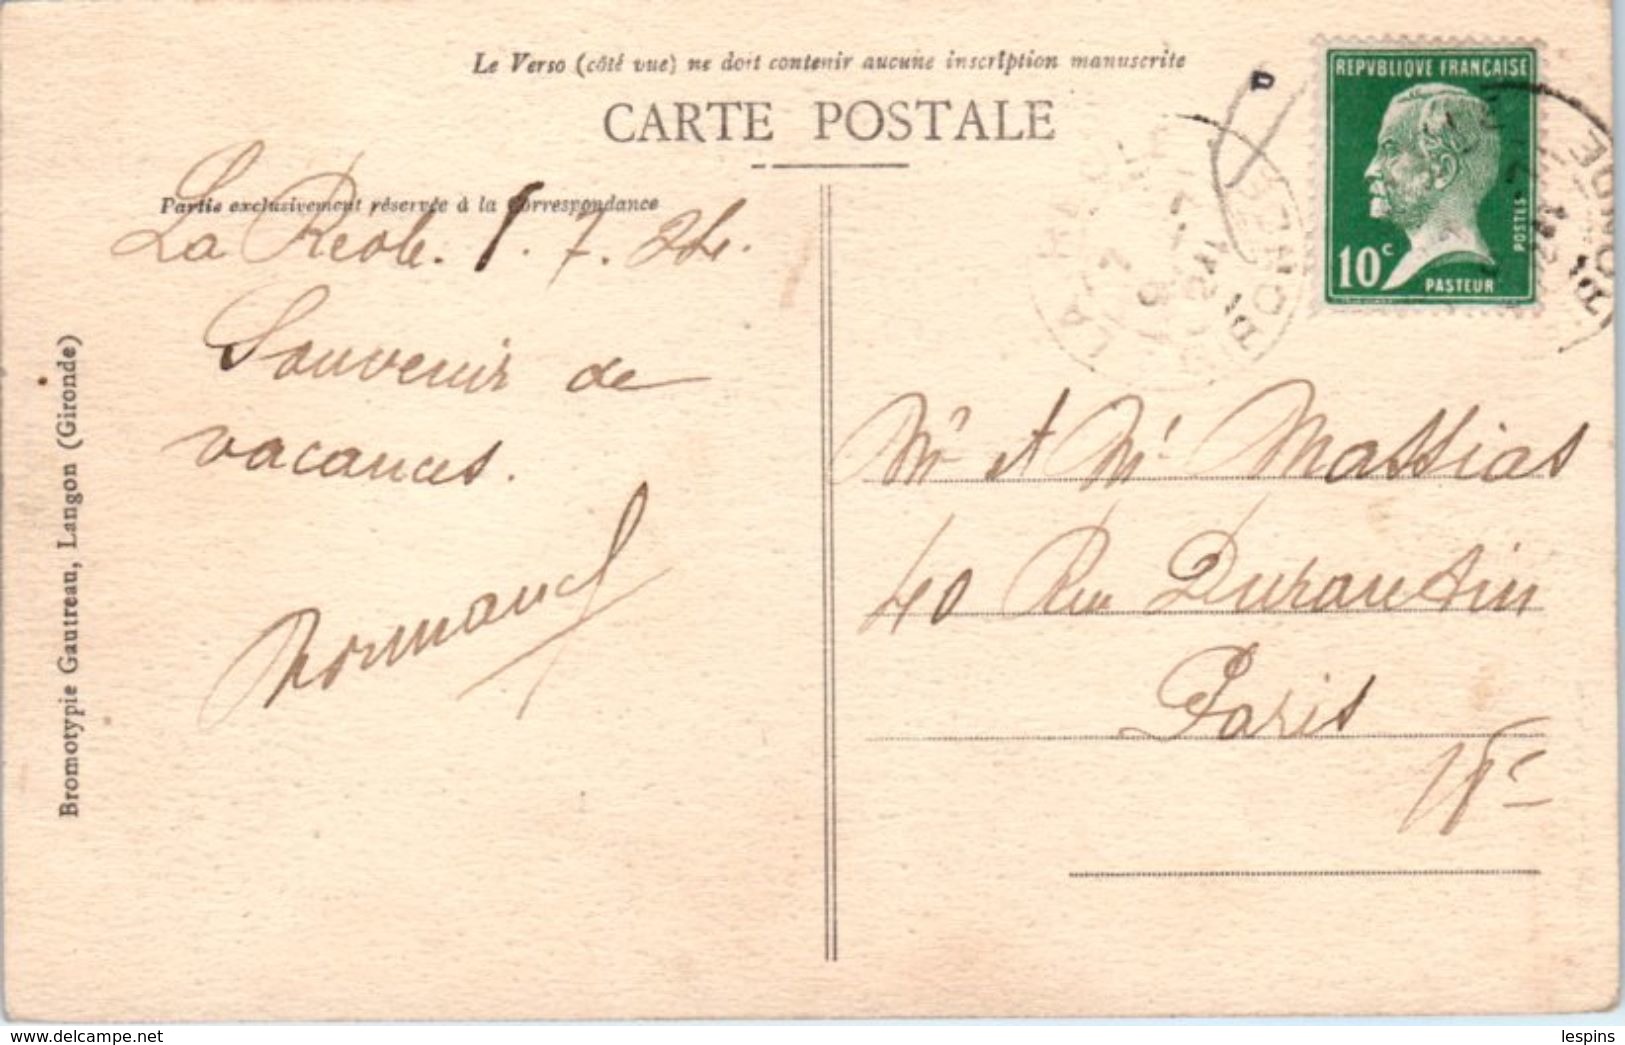 Le Verso (côté vue) ne doit contenir aucune inscription manuscrite
CARTE POSTALE
Partie exclusivement réservée à la Correspondance
La Reole. 8. 7. 24.
Souvenir de
vacances.
Normand
Bromotypie Gautreau, Langon (Gironde)
REPVBLIQVE FRANÇAISE
10c
PASTEUR
POSTES
GIRONDE
Mr et Me Massias
40 Rue Durantin
Paris
delcampe.net
lespins